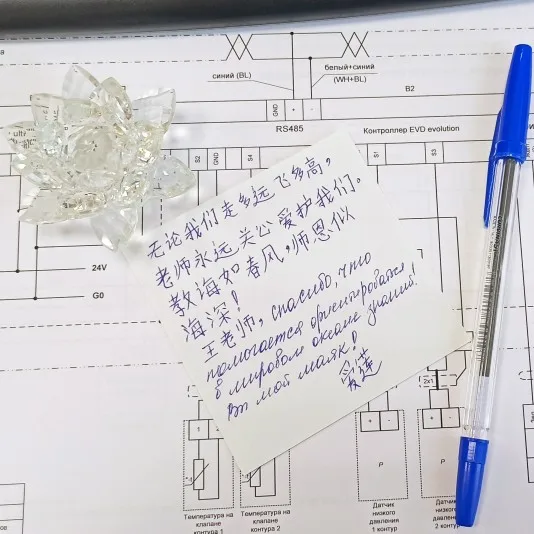 синий (BL)
белый+синий
(WH+BL)
B2
GND
+
-
RS485
Контроллер EVD evolution
S2
GND
S1
S3
24V
G0
无论我们走多远飞多高，
老师永远关公爱护我们。
教诲如春风，师恩似
海深！
王老师, спасибо, что
помогаете ориентироваться
в мировом океане знаний!
Вы мой маяк!
爱莲
1
2x1
+
-
P
P
Температура на
клапане
контура 1
Температура на
клапане
контур 2
Датчик
низкого
давления
1 контур
Датчик
низкого
давления
2 контур